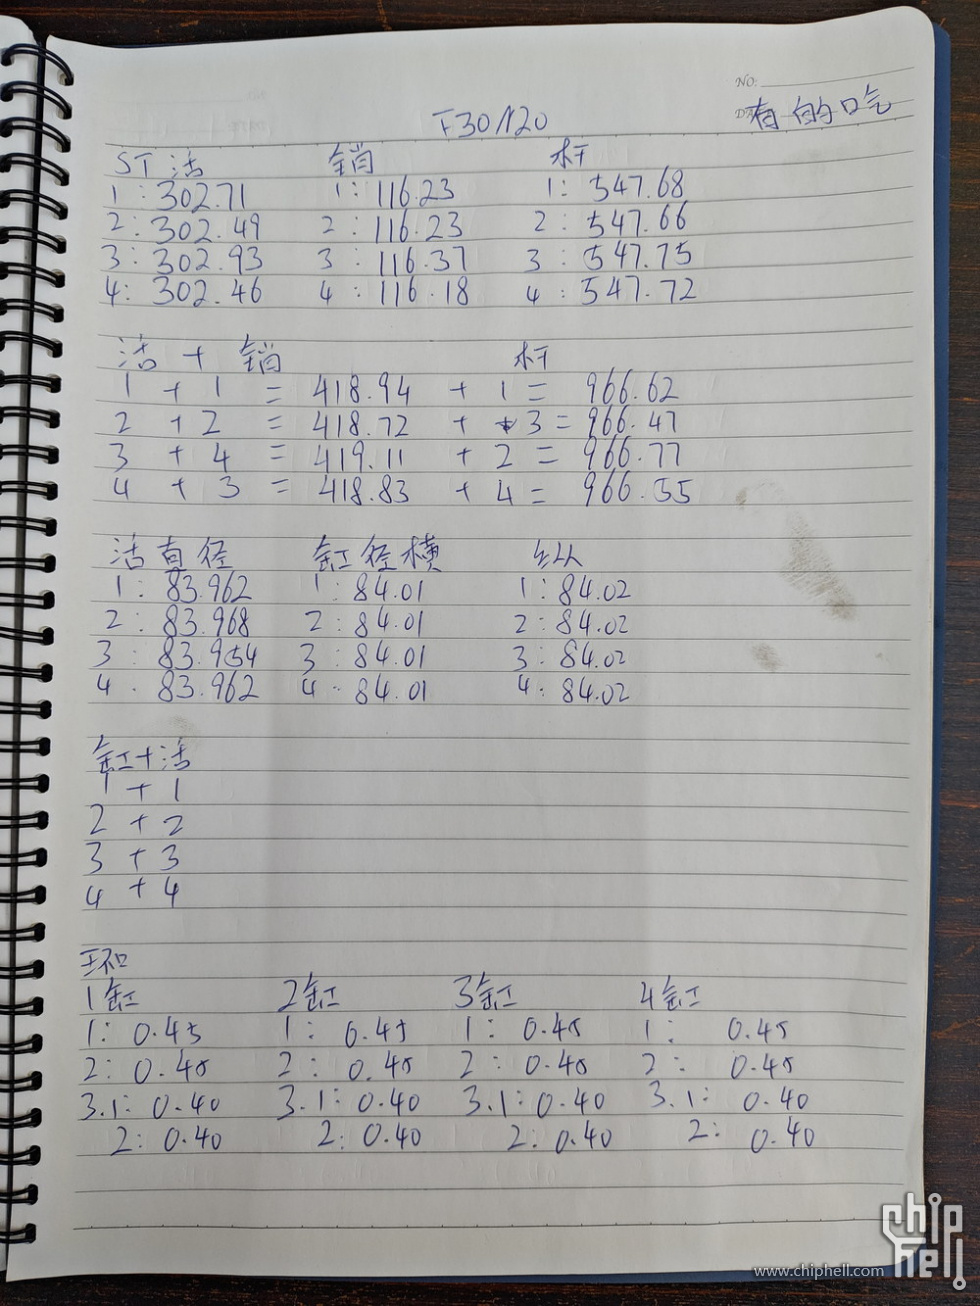 NO.
有的口气
F30 N20
ST 活 销 杆
1: 302.71 1: 116.23 1: 547.68
2: 302.49 2: 116.23 2: 547.66
3: 302.93 3: 116.37 3: 547.75
4: 302.46 4: 116.18 4: 547.72
活 + 销 杆
1 + 1 = 418.94 + 1 = 966.62
2 + 2 = 418.72 + 3 = 966.47
3 + 4 = 419.11 + 2 = 966.77
4 + 3 = 418.83 + 4 = 966.55
活直径 缸径横 纵
1: 83.962 1: 84.01 1: 84.02
2: 83.968 2: 84.01 2: 84.02
3: 83.954 3: 84.01 3: 84.02
4: 83.962 4: 84.01 4: 84.02
缸+活
1 + 1
2 + 2
3 + 3
4 + 4
1缸 2缸 3缸 4缸
1: 0.45 1: 0.45 1: 0.45 1: 0.45
2: 0.45 2: 0.45 2: 0.45 2: 0.45
3.1: 0.40 3.1: 0.40 3.1: 0.40 3.1: 0.40
2: 0.40 2: 0.40 2: 0.40 2: 0.40
chip
hell
www.chiphell.com